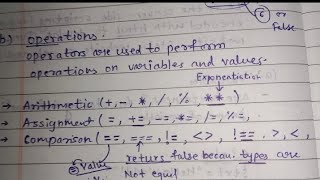 ⑥ or
False
b) operations :-
operators are used to perform
operations on variables and values.
Exponentiation
→ Arithmetic (+, -, *, /, %, **),
→ Assignment (=, +=, -=, *=, /=, %=,
→ Comparison (==, ===, !=, <>, !==, >, <,
Value returs false becau. types are
Not equl